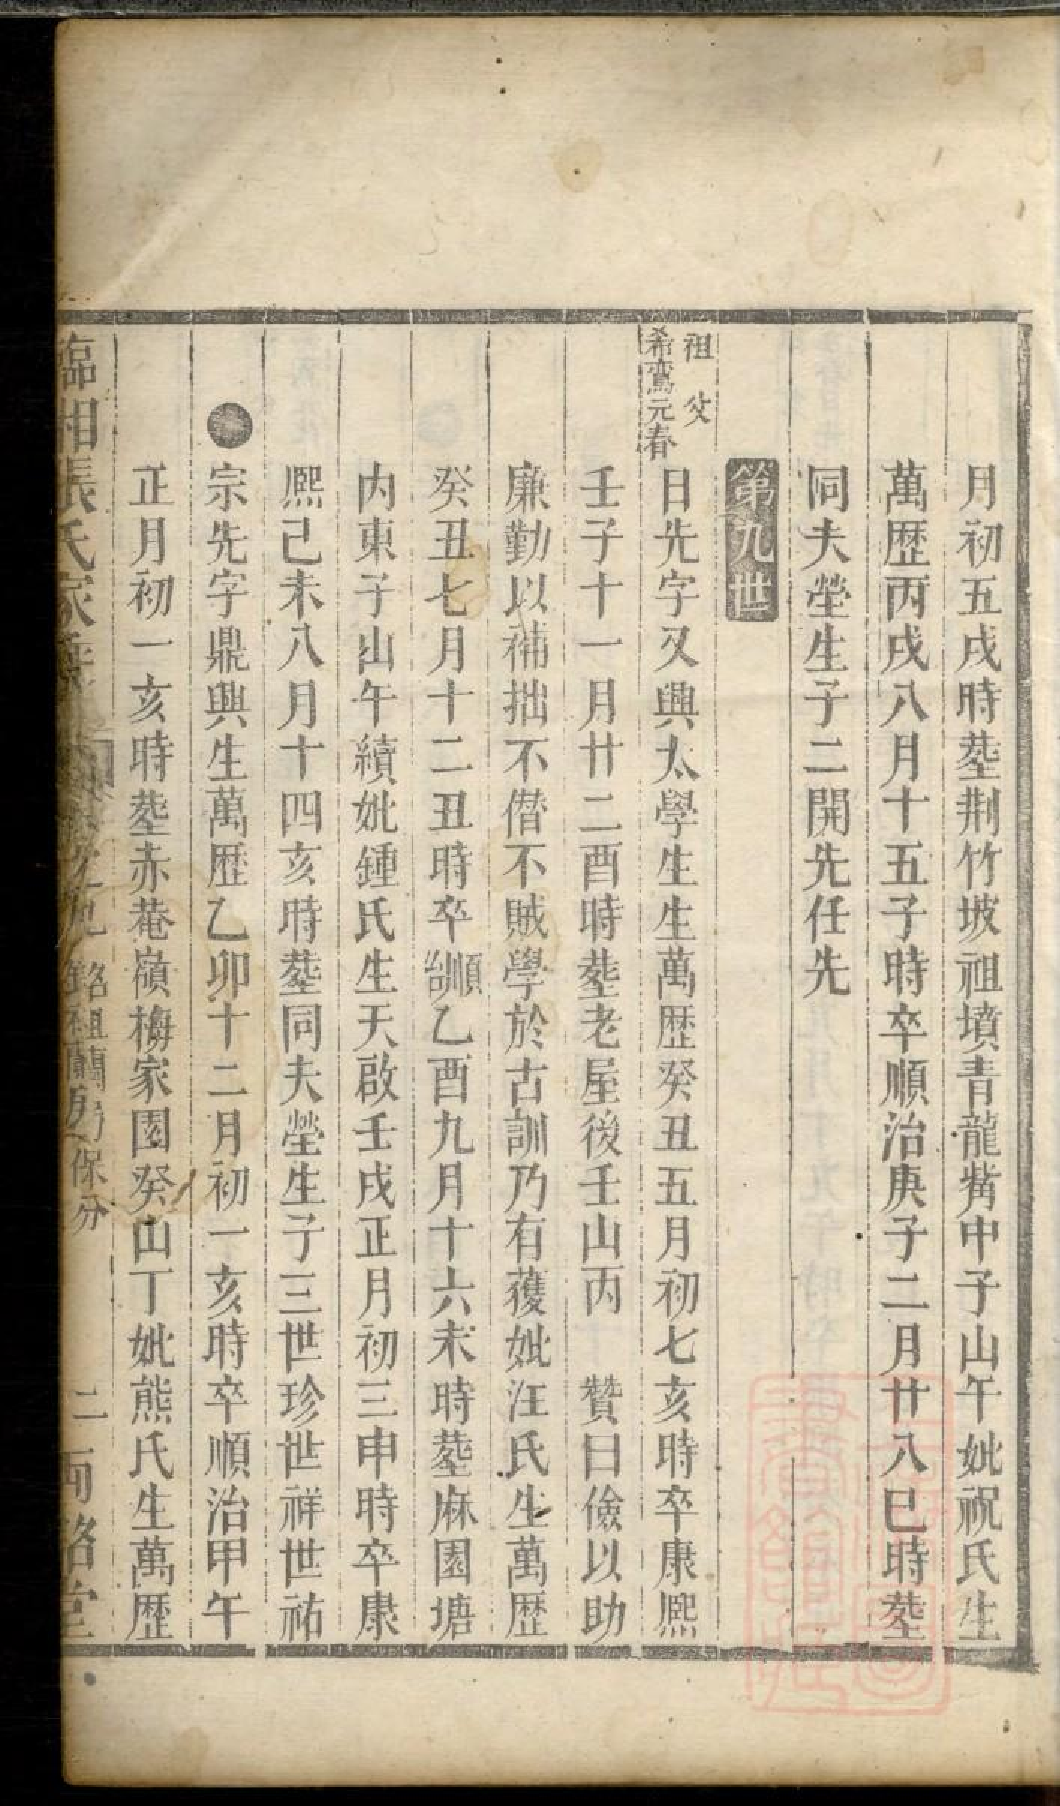 月初五戌時塟荆竹坡祖墳青龍觜甲子山午妣祝氏生
萬歷丙戌八月十五子時卒順治庚子二月廿八巳時塟
同夫塋生子二開先任先
第九世
祖父
希鸞元春
日先字又興太學生生萬歷癸丑五月初七亥時卒康熙
壬子十一月廿二酉時塟老屋後壬山丙 贊曰儉以助
廉勤以補拙不僭不賊學於古訓乃有獲妣汪氏生萬歷
癸丑七月十二丑時卒順乙酉九月十六未時塟麻園塘
内東子山午續妣鍾氏生天啟壬戌正月初三申時卒康
熙己未八月十四亥時塟同夫塋生子三世珍世祥世祐
宗先字鼎興生萬歷乙卯十二月初一亥時卒順治甲午
正月初一亥時塟赤菴嶺梅家園癸山丁妣熊氏生萬歷
臨相張氏家
銘祖蘭房保分
二